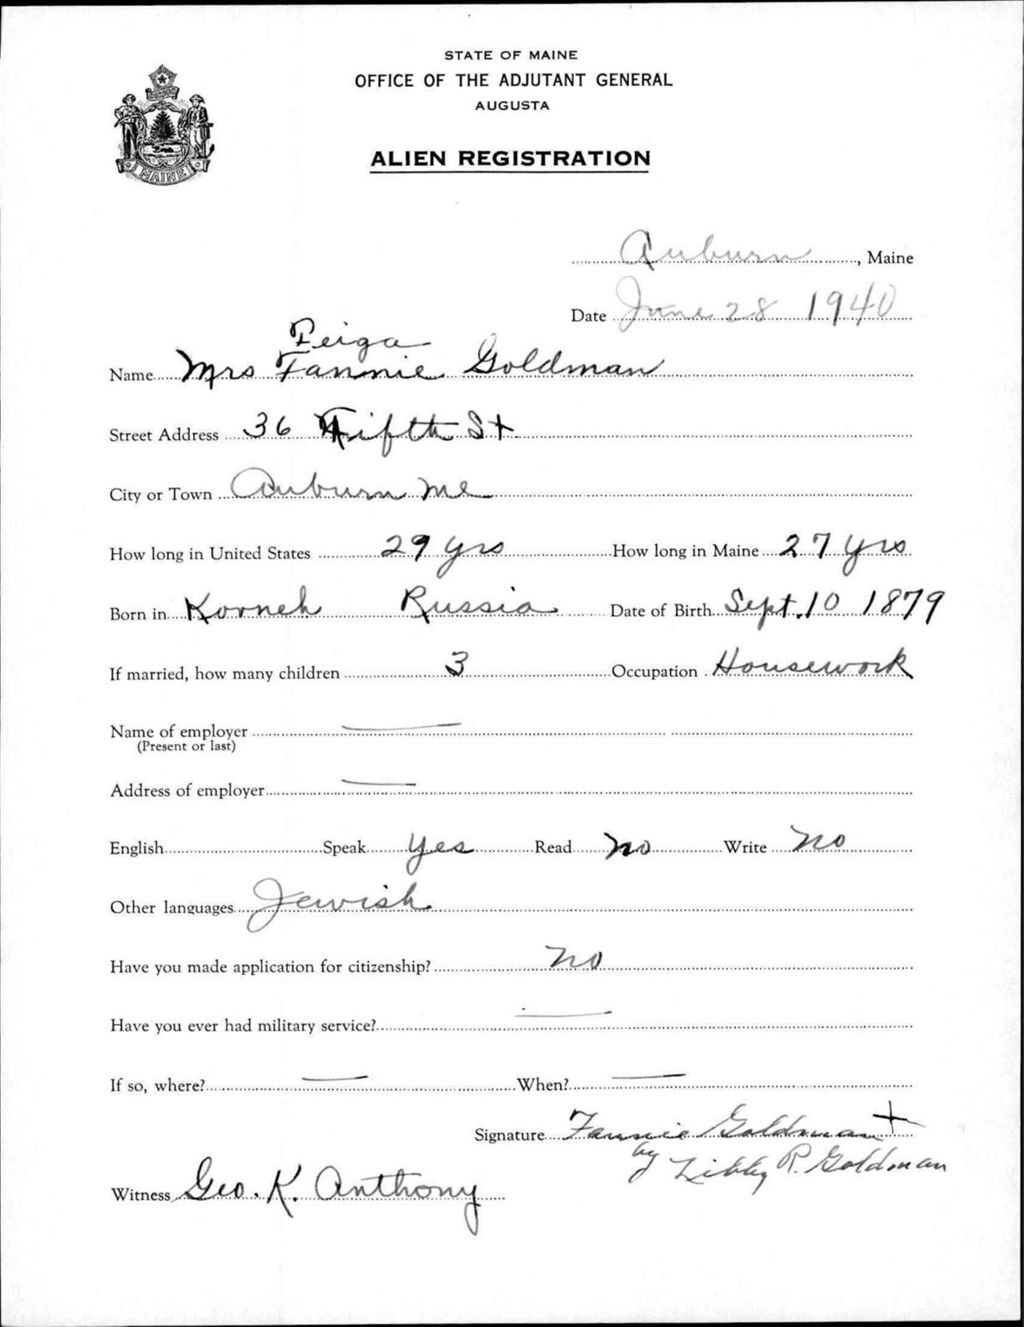 STATE OF MAINE
OFFICE OF THE ADJUTANT GENERAL
AUGUSTA
MAINE
ALIEN REGISTRATION
Auburn, Maine
Date June 28 1940
Peiga
Name Mrs Fannie Goldman
Street Address 36 Fifth St
City or Town Auburn Me
How long in United States 29 yrs How long in Maine 27 yrs
Born in Korneh Russia Date of Birth Sept. 10 1879
If married, how many children 3 Occupation Housework
Name of employer
(Present or last)
Address of employer
English Speak Yes Read No Write No
Other languages Jewish
Have you made application for citizenship? No
Have you ever had military service?
If so, where? When?
Signature Fannie Goldman +
by Libby R. Goldman
Witness Geo. K. Anthony